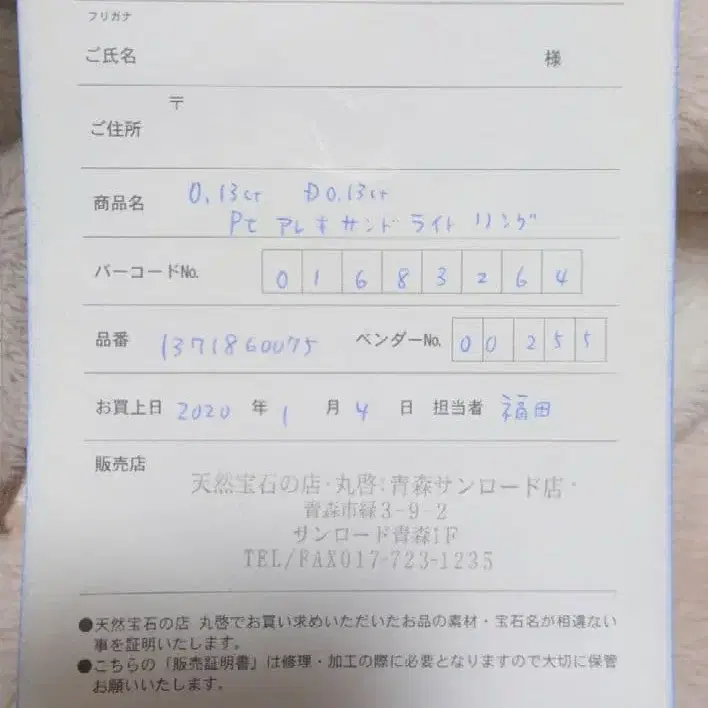 フリガナ
ご氏名 様
〒
ご住所
0.13ct D0.13ct
商品名
Pt アレキサンドライト リング
バーコードNo. 01683264
品番 1371860075 ベンダーNo. 00255
お買上日 2020 年 1 月 4 日 担当者 福田
販売店
天然宝石の店・丸啓:青森サンロード店・
青森市緑3-9-2
サンロード青森1F
TEL/FAX017-723-1235
●天然宝石の店 丸啓でお買い求めいただいたお品の素材・宝石名が相違ない
事を証明いたします。
●こちらの「販売証明書」は修理・加工の際に必要となりますので大切に保管
お願いいたします。